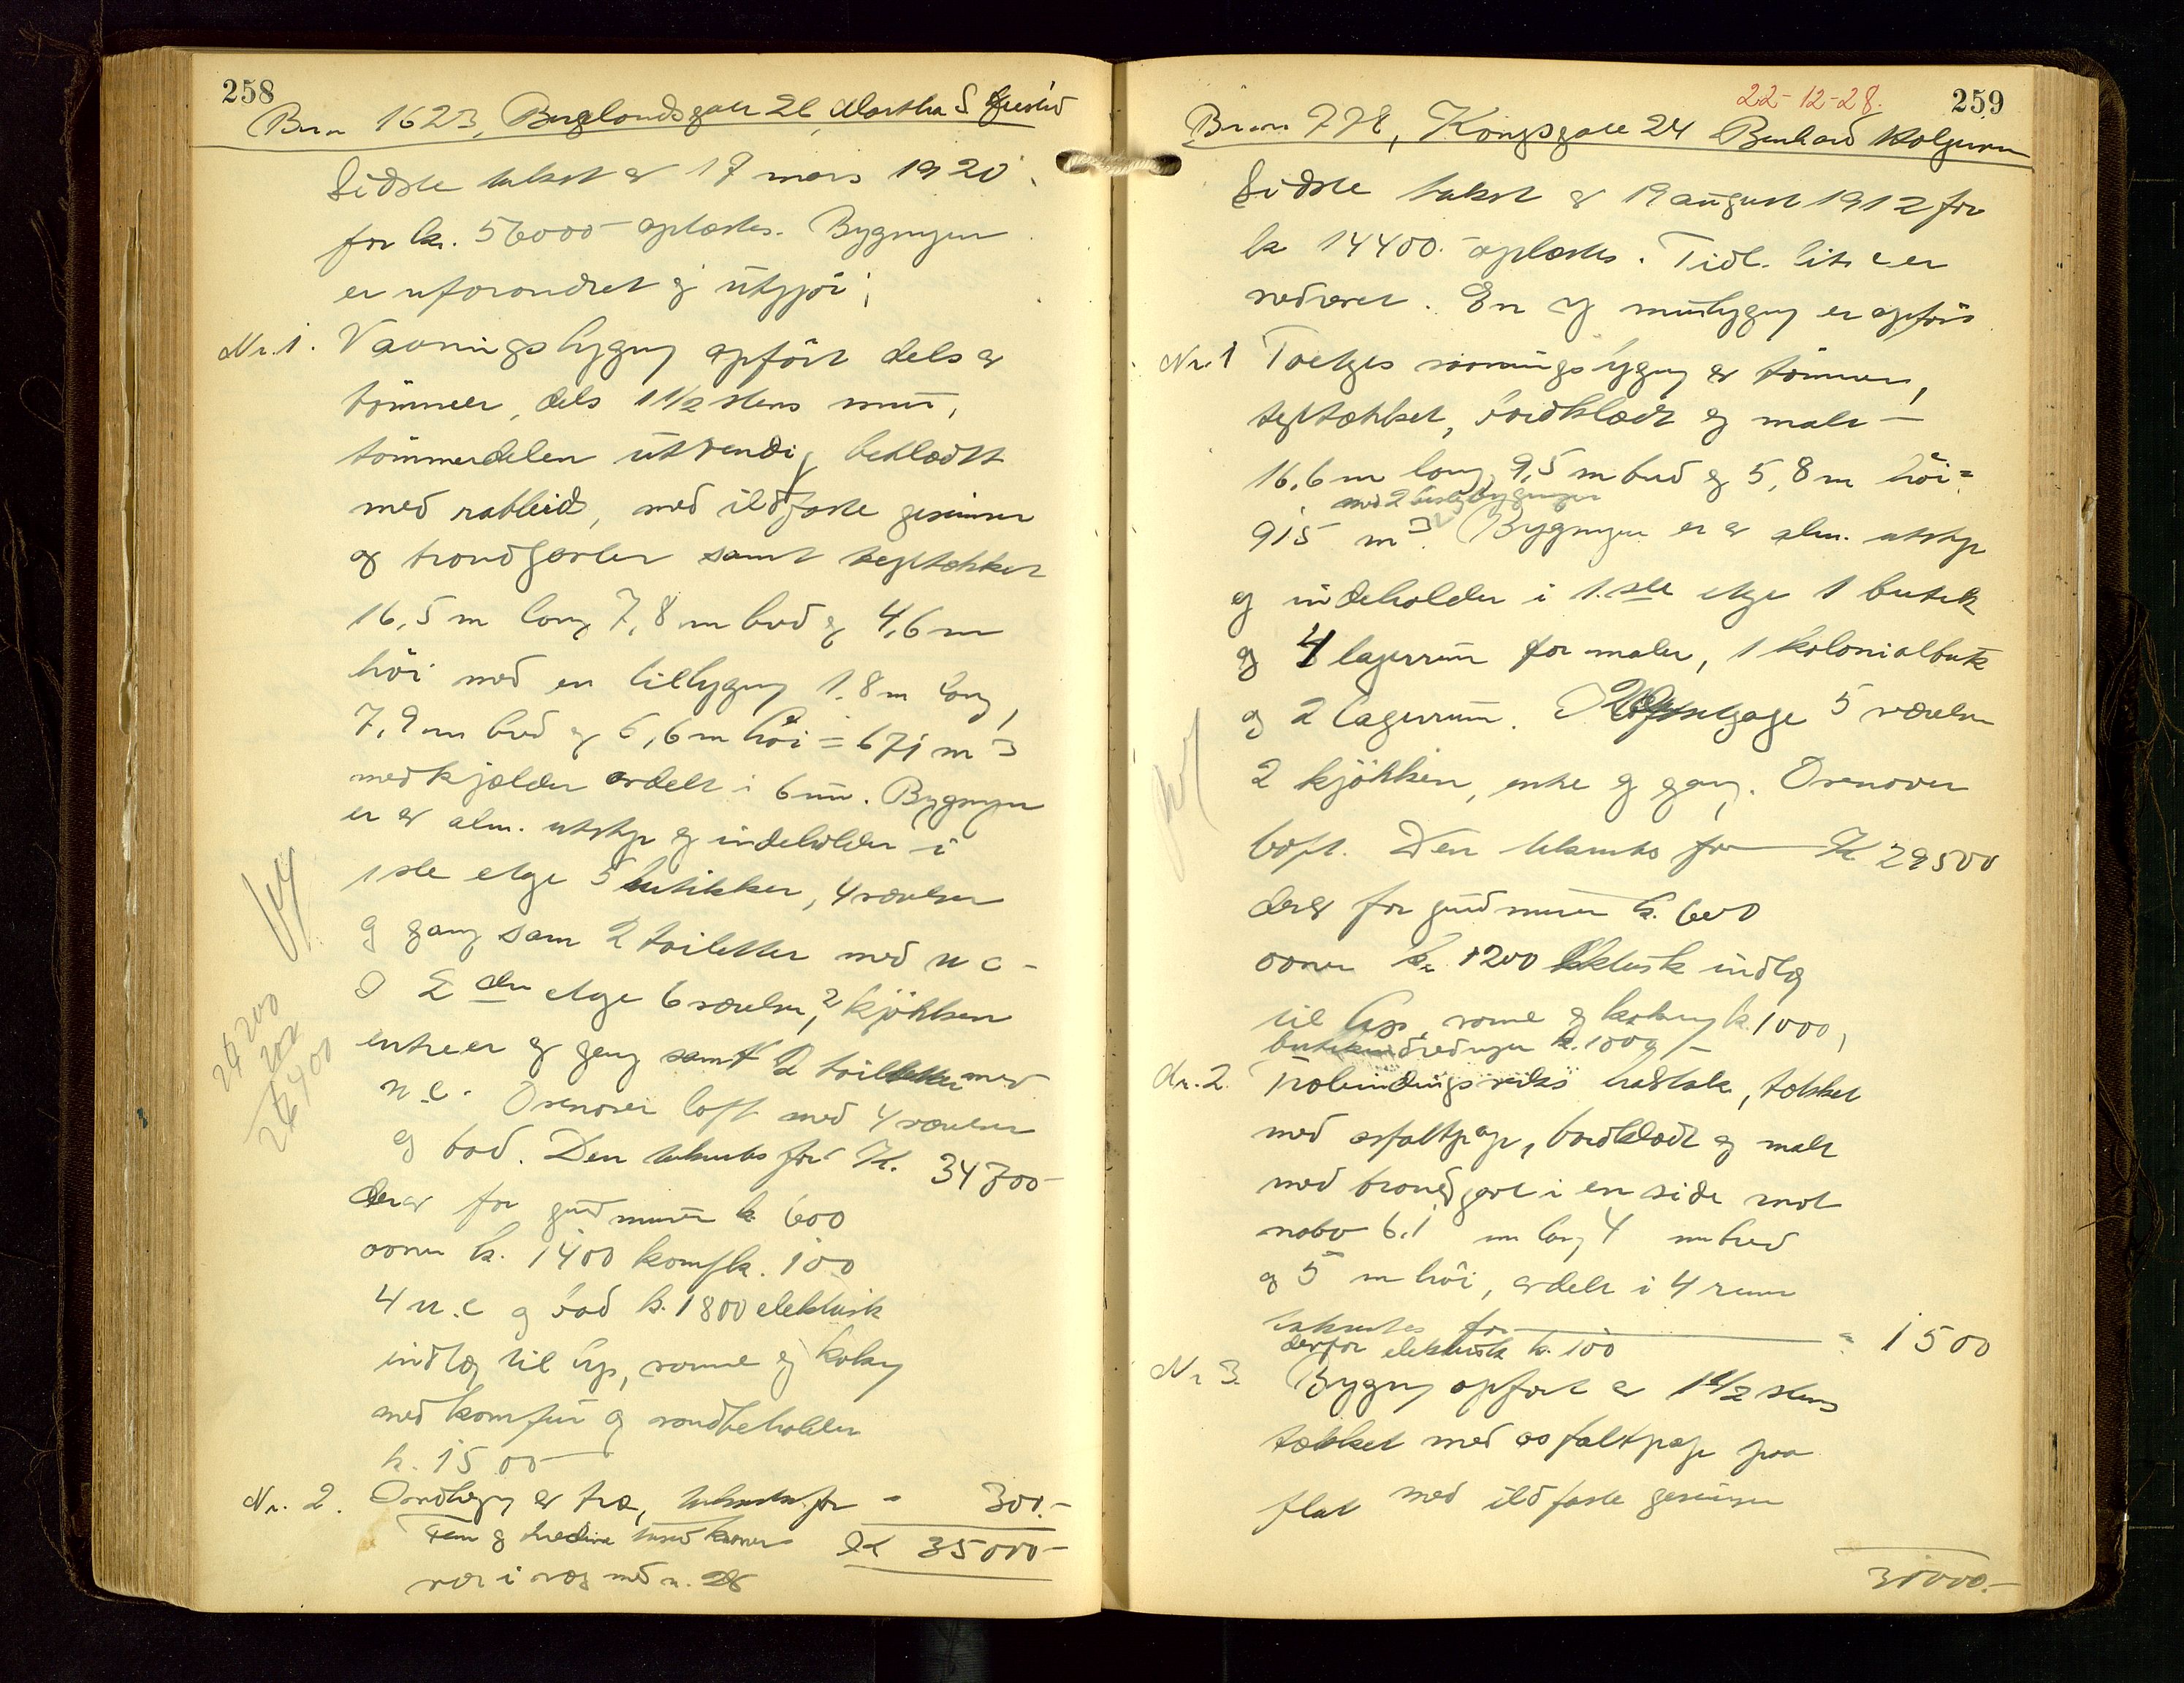 258
Br.nr 1623, Berglandsgate 26, Martha S
Sidste takst av 17 mars 1920
for kr. 56000 oplæstes. Bygningen
er uforandret og utgjör;
Nr. 1. Vaaningsbygning opfört dels av
tömmer, dels 1 1/2 stens mur,
tömmerdelen utvendig beklædt
med rabbeid, med ildfaste gesimser
og brandgavler samt tegltækket
16,5 m lang 7,8 m bred og 4,6 m
höi med en tilbygning 1,8 m lang,
7,9 m bred og 6,6 m höi = 671 m3
med kjælder avdelt i 6 rum. Bygningen
er av alm. utstyr og indeholder i
1ste etage 5 butikker, 4 værelser
og gang samt 2 toiletter med w c -
I 2den etage 6 værelser, 2 kjökken
entreer og gang samt 2 toiletter med
w.c. Ovenover loft med 4 værelser
og bad. Den takseres for Kr. 34700-
derav for grundmuren kr 600
ovner kr. 1400 komf kr. 100
4 w.c og bad kr. 1800 elektrisk
indlæg til lys, varme og kokning
med komfur og vandbeholder
kr. 1500
Nr. 2. Vandbygn av træ, takseres for " 300.-
Fem og tredive tusind kroner Kr 35000-
var i væg med n. 28
26200
200
26400
22-12-28.
259
Br.nr 778, Kongsgate 24 Bernhard Holgersen
Sidste takst av 19 august 1912 for
kr 14400.- oplæstes. Tidl. litr c er
nedrevet. En ny murbygning er opfört
Nr. 1 Toetages vaaningsbygning av tömmer,
tegltækket, bordklædt og malt -
16,6 m lang, 9,5 m bred og 5,8 m höi =
med 2 bislagbygninger
915 m3. Bygningen er av alm. utstyr
og indeholder i 1.ste etage 1 butik
og 4 lagerrum for maler, 1 kolonialbutik
og 2 lagerrum. I 2den etage 5 værelser
2 kjökken, entre og gang. Ovenover
loft. Den takseres for Kr 29500
derav for grundmuren kr. 600
ovner kr. 1200 Elektrisk indlæg
til lys, varme og kokning kr. 1000,
butikindredninger kr. 1000 -
Nr. 2. Træbindingsverks baghus, tækket
med asfaltpap, bordklædt og malt
med brandgavl i en side mot
nabo 6.1 m lang 4 m bred
og 5 m höi, avdelt i 4 rum
takseres for " 1500
derfor elektrisk kr. 100
Nr 3. Bygning opfört av 1 1/2 stens
tækket med asfaltpap paa
flat med ildfaste gesimser
31000.-